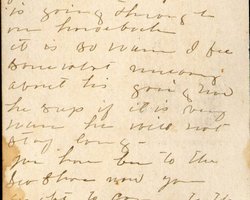 is going through to
on horseback
it is so warm I feel
somewhat uneasy
about his going now
he says if it is very
warm he will not
stay long.
you have been to the
Sea Shore now you
to the